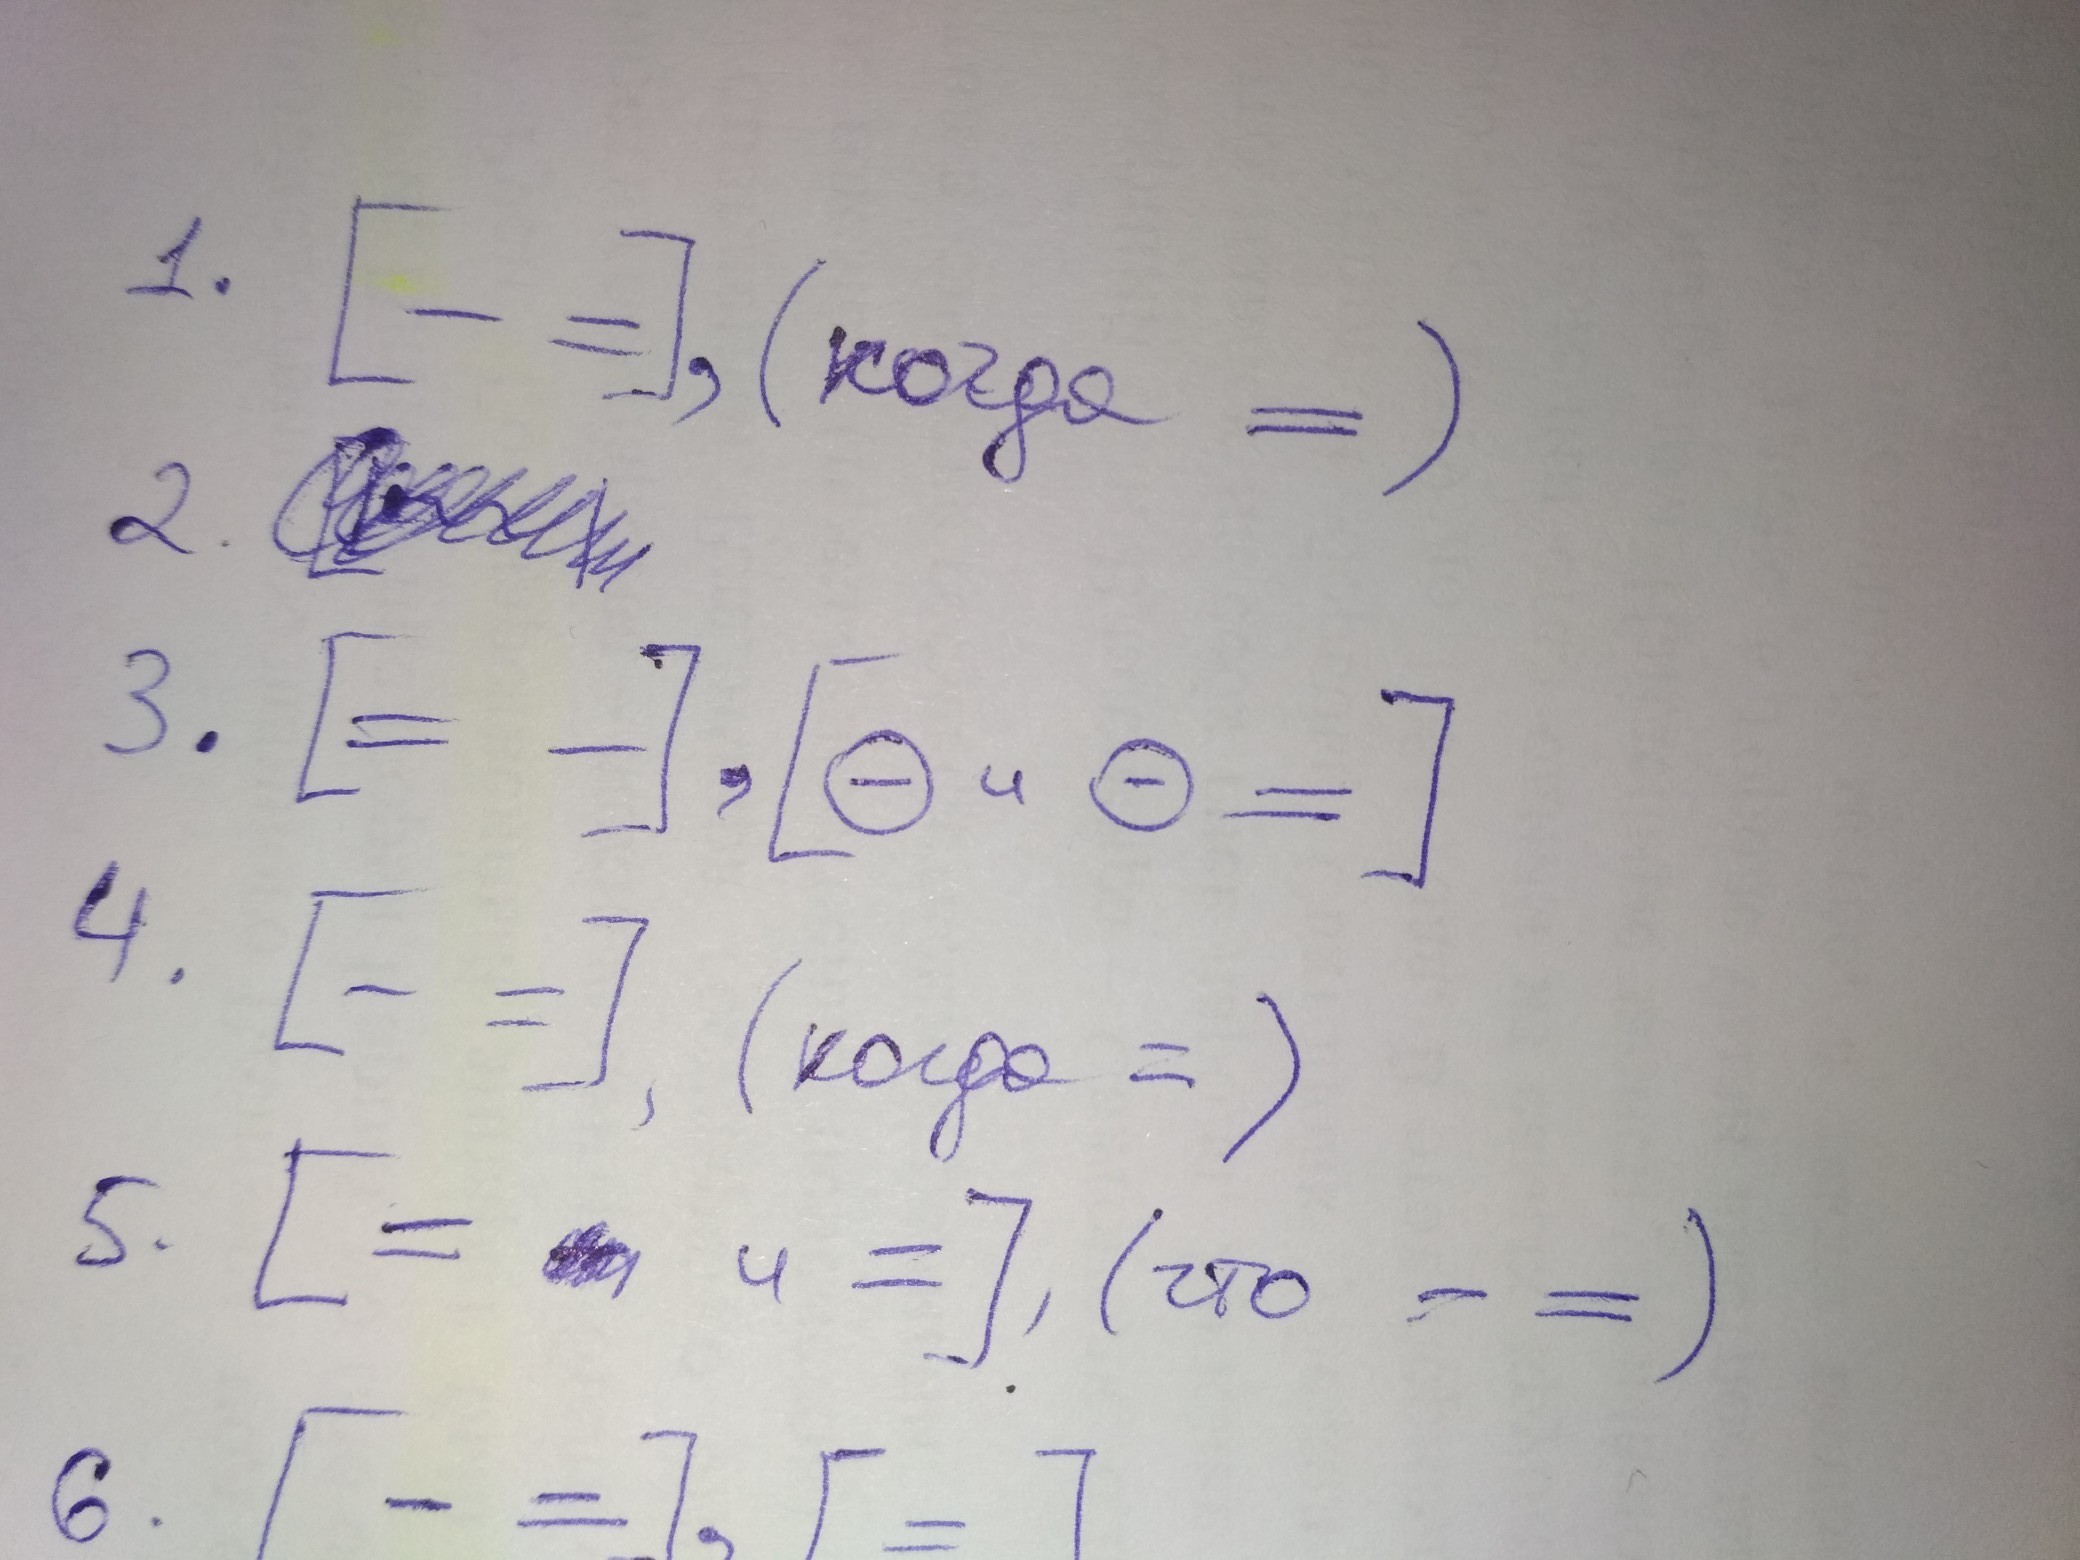 1. [— =], (когда =)
2.
3. [= —], [⊖ и ⊖ =]
4. [— =], (когда =)
5. [= и =], (что — =)
6. [— =], [=]